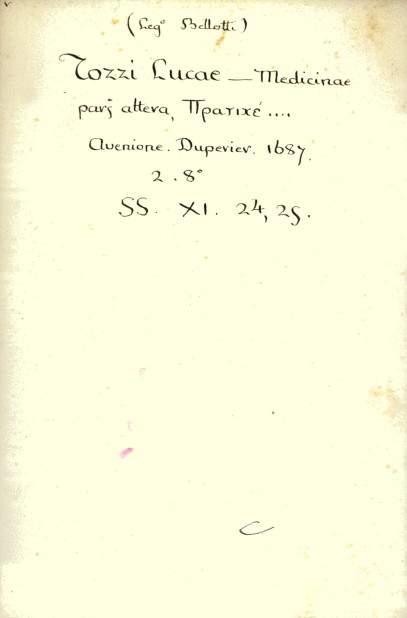 (Leg° Bellotti)
Tozzi Lucae — Medicinae
pars altera, Πρατιχέ....
Avenione. Duperier. 1687.
2 . 8°
SS. XI. 24, 25.
C